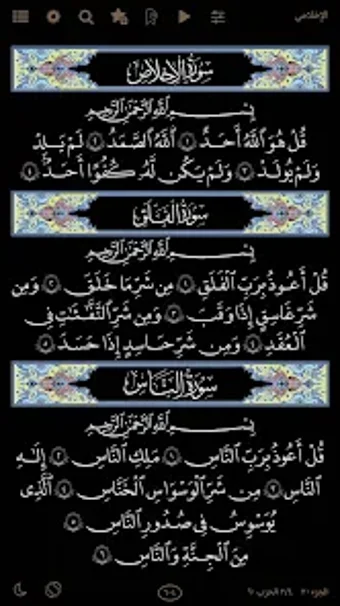 الإخلاص
سُورَةُ الإِخْلَاصِ
بِسْمِ اللَّهِ الرَّحْمَٰنِ الرَّحِيمِ
قُلْ هُوَ ٱللَّهُ أَحَدٌ ١ ٱللَّهُ ٱلصَّمَدُ ٢ لَمْ يَلِدْ
وَلَمْ يُولَدْ ٣ وَلَمْ يَكُن لَّهُۥ كُفُوًا أَحَدٌۢ ٤
سُورَةُ الفَلَقِ
بِسْمِ اللَّهِ الرَّحْمَٰنِ الرَّحِيمِ
قُلْ أَعُوذُ بِرَبِّ ٱلْفَلَقِ ١ مِن شَرِّ مَا خَلَقَ ٢ وَمِن
شَرِّ غَاسِقٍ إِذَا وَقَبَ ٣ وَمِن شَرِّ ٱلنَّفَّٰثَٰتِ فِى
ٱلْعُقَدِ ٤ وَمِن شَرِّ حَاسِدٍ إِذَا حَسَدَ ٥
سُورَةُ النَّاسِ
بِسْمِ اللَّهِ الرَّحْمَٰنِ الرَّحِيمِ
قُلْ أَعُوذُ بِرَبِّ ٱلنَّاسِ ١ مَلِكِ ٱلنَّاسِ ٢ إِلَٰهِ
ٱلنَّاسِ ٣ مِن شَرِّ ٱلْوَسْوَاسِ ٱلْخَنَّاسِ ٤ ٱلَّذِى
يُوَسْوِسُ فِى صُدُورِ ٱلنَّاسِ ٥
مِنَ ٱلْجِنَّةِ وَٱلنَّاسِ ٦
الجزء ٣٠ ٣/٤ الحزب ٦٠
٦٠٤